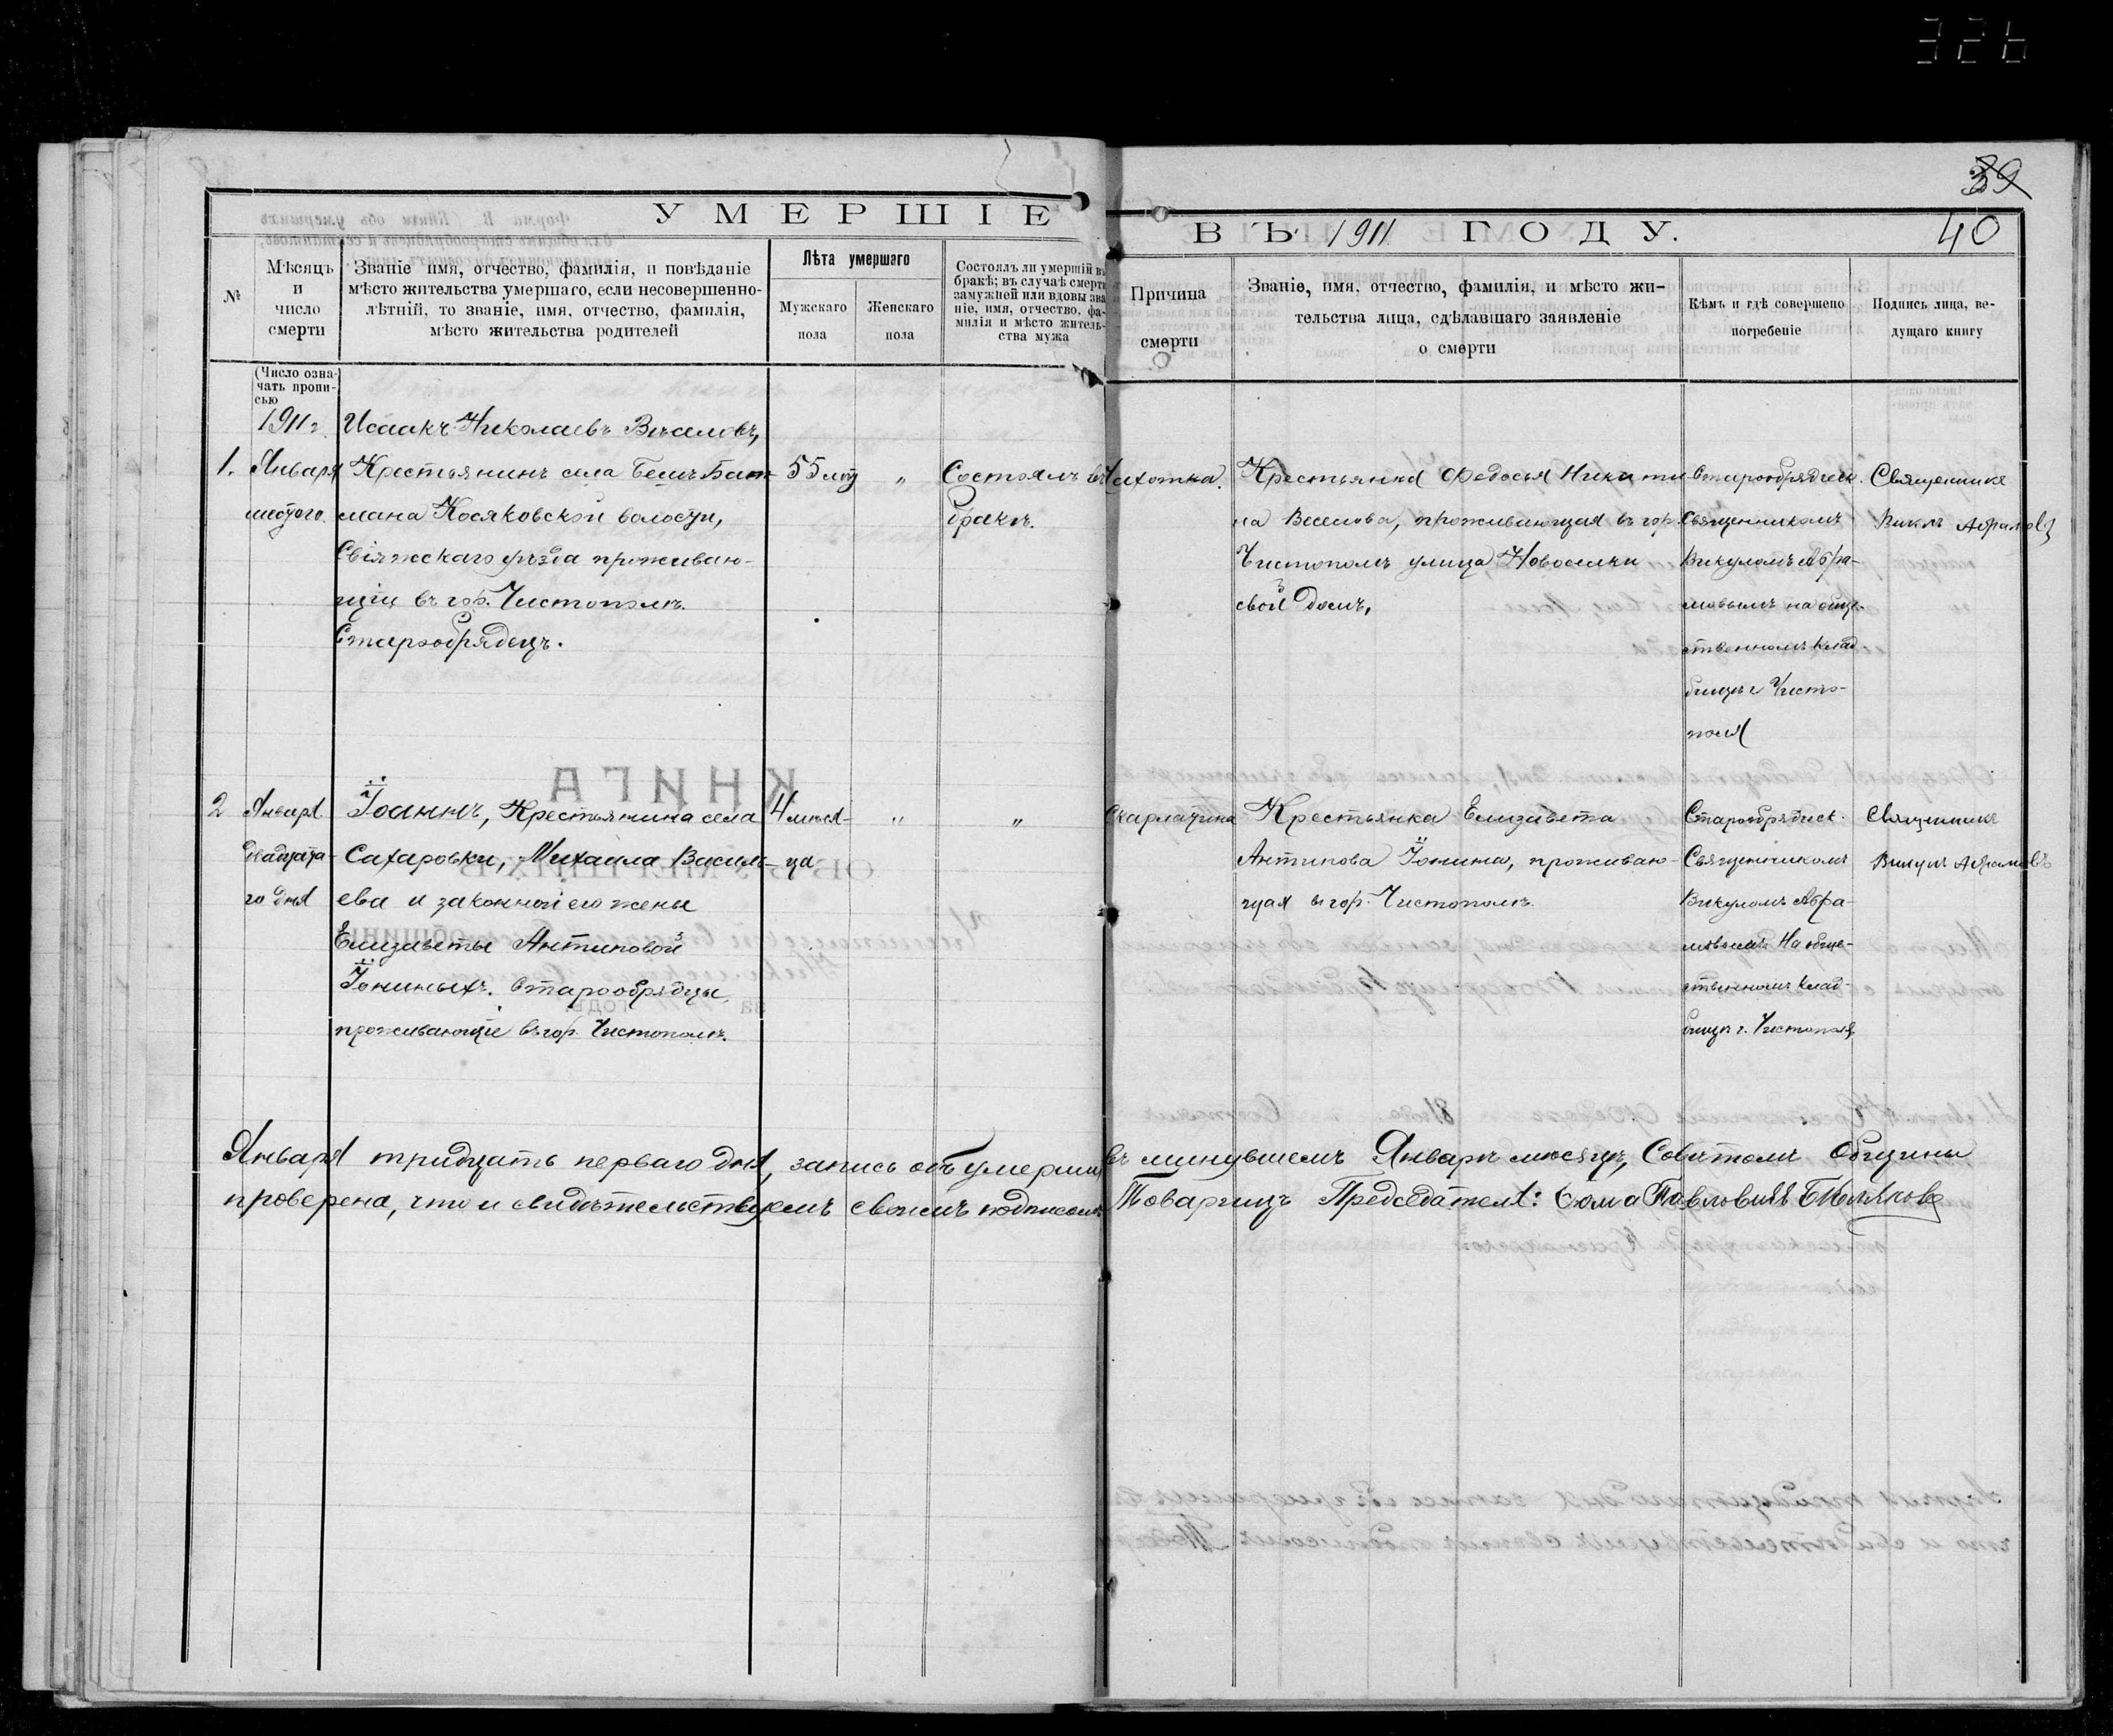 326
39
40
УМЕРШІЕ
ВЪ 1911 ГОДУ.
№
Мѣсяцъ и число смерти
Званіе имя, отчество, фамилія, и повѣданіе
мѣсто жительства умершаго, если несовершенно-
лѣтній, то званіе, имя, отчество, фамилія,
мѣсто жительства родителей
Лѣта умершаго
Мужскаго пола
Женскаго пола
Состоялъ ли умершій въ
бракѣ; въ случаѣ смерти
замужней или вдовы зва
ніе, имя, отчество, фа-
милія и мѣсто житель-
ства мужа
Причина смерти
Званіе, имя, отчество, фамилія, и мѣсто жи-
тельства лица, сдѣлавшаго заявленіе
о смерти
Кѣмъ и гдѣ совершено
погребеніе
Подпись лица, ве-
дущаго книгу
(Число озна-
чать пропи-
сью
1911 г.
1.
Января
шестого
Исаакъ Николаевъ
Крестьянинъ села
мана Косяковской волости,
Свіяжскаго уѣзда проживаю-
щій въ гор. Чистополѣ.
Старообрядецъ.
55 лѣт
"
Состоялъ въ
бракѣ.
Чахотка.
Крестьянка Федосья Никити
на Веселова, проживающая въ гор.
Чистополѣ улица Новоселки
свой домъ,
Старообрядческ.
Священникомъ
Викуломъ Абра-
мовымъ на обще-
ственномъ клад-
бищѣ г. Чисто-
поля
Священникъ
Викулъ Абрамовъ
2
Января
двадцата-
го дня
Іоаннъ, Крестьянина села
Сахаровки, Михаила Василь-
ева и законной его жены
Елизаветы Антиповой
Іониныхъ. Старообрядцы,
проживающіе въ гор. Чистополѣ.
4 мѣся-
ца
"
"
Скарлатина
Крестьянка Елизавета
Антипова Іонина, проживаю-
щая въ гор. Чистополѣ.
Старообрядческ.
Священникомъ
Викуломъ Абра-
мовымъ На обще-
ственномъ клад-
бищѣ г. Чистополя
Священникъ
Викулъ Абрамовъ
Января тридцать перваго дня, запись объ умерших въ минувшемъ Январѣ мѣсяцѣ, Совѣтомъ Общины
проверена, что и свидѣтельствуемъ своимъ подписомъ Товарищъ Председателя: Фома Павловичъ